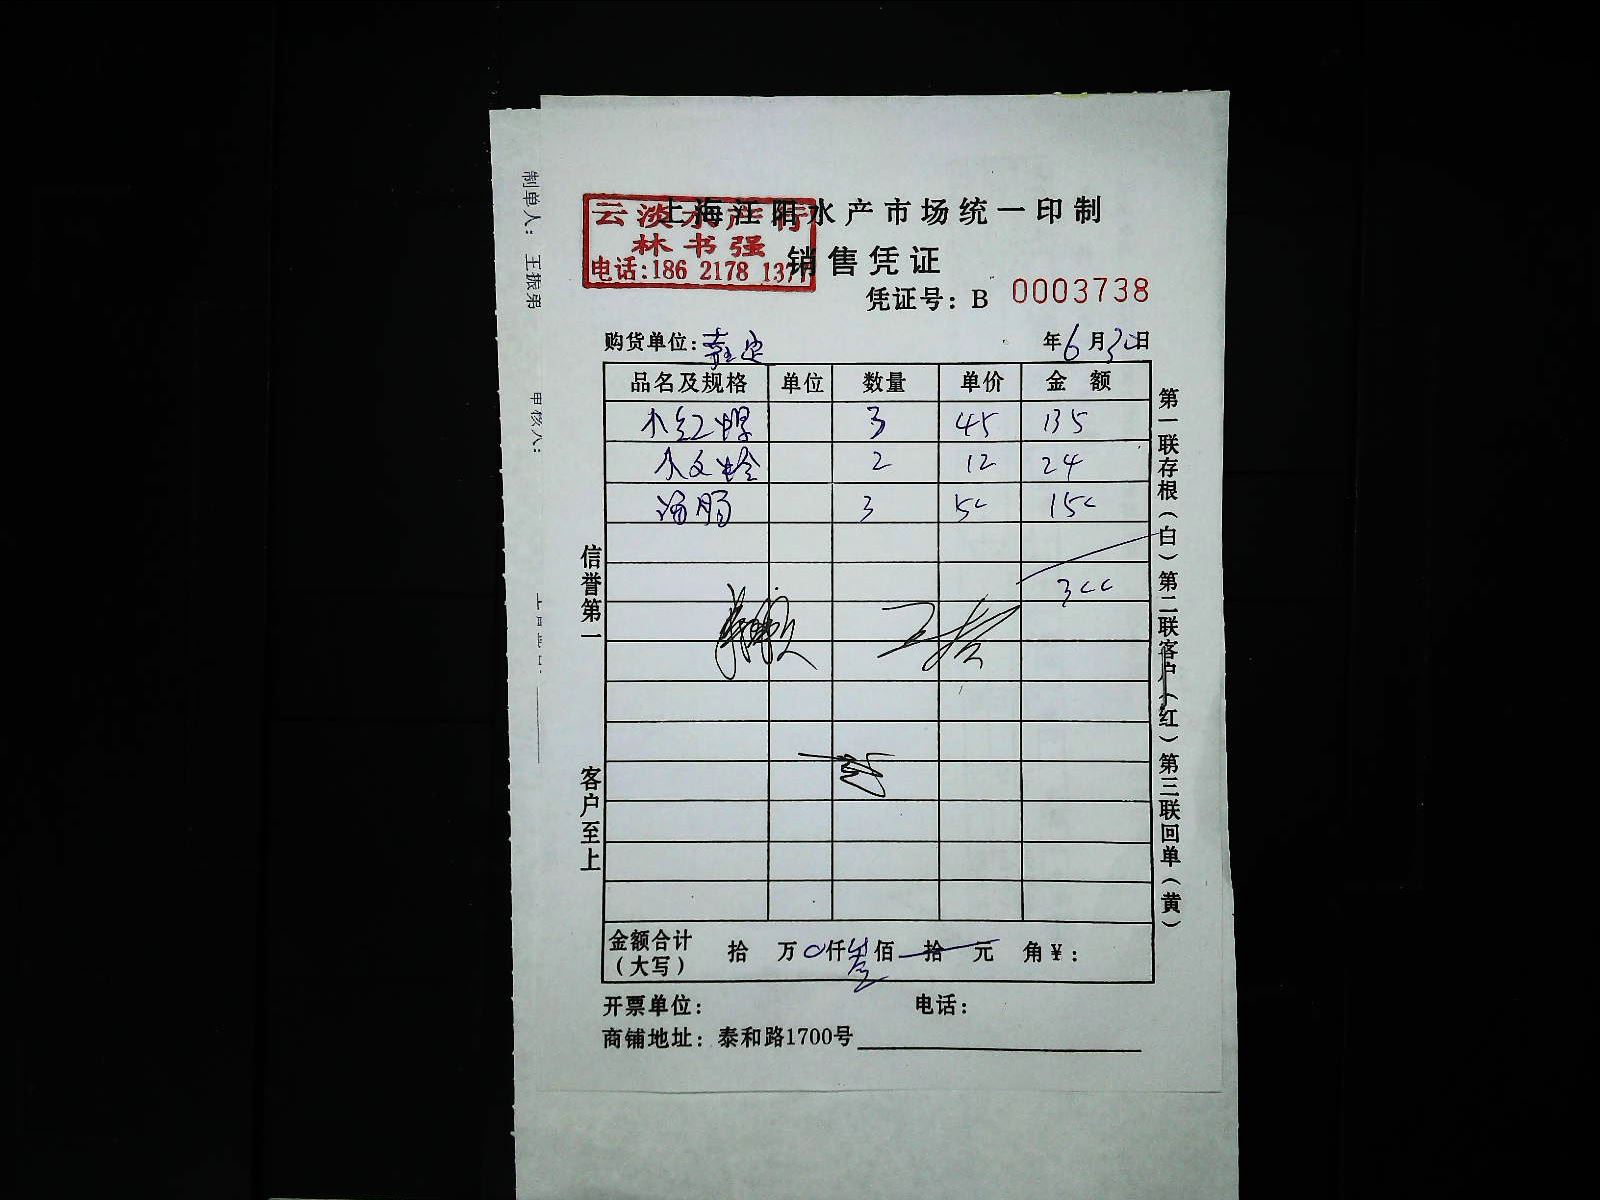 上海江阳水产市场统一印制
云淡水产行
林书强
电话:186 2178 1377
销售凭证
凭证号：B 0003738
购货单位：嘉定
年6月30日
品名及规格 单位 数量 单价 金额
小红 3 45 135
小文蛤 2 12 24
海肠 3 50 150
300
金额合计（大写） 拾 万 0仟叁佰 拾 元 角￥：
开票单位： 电话：
商铺地址：泰和路1700号
信誉第一
客户至上
第一联存根（白）第二联客户（红）第三联回单（黄）
制单人：王振弟